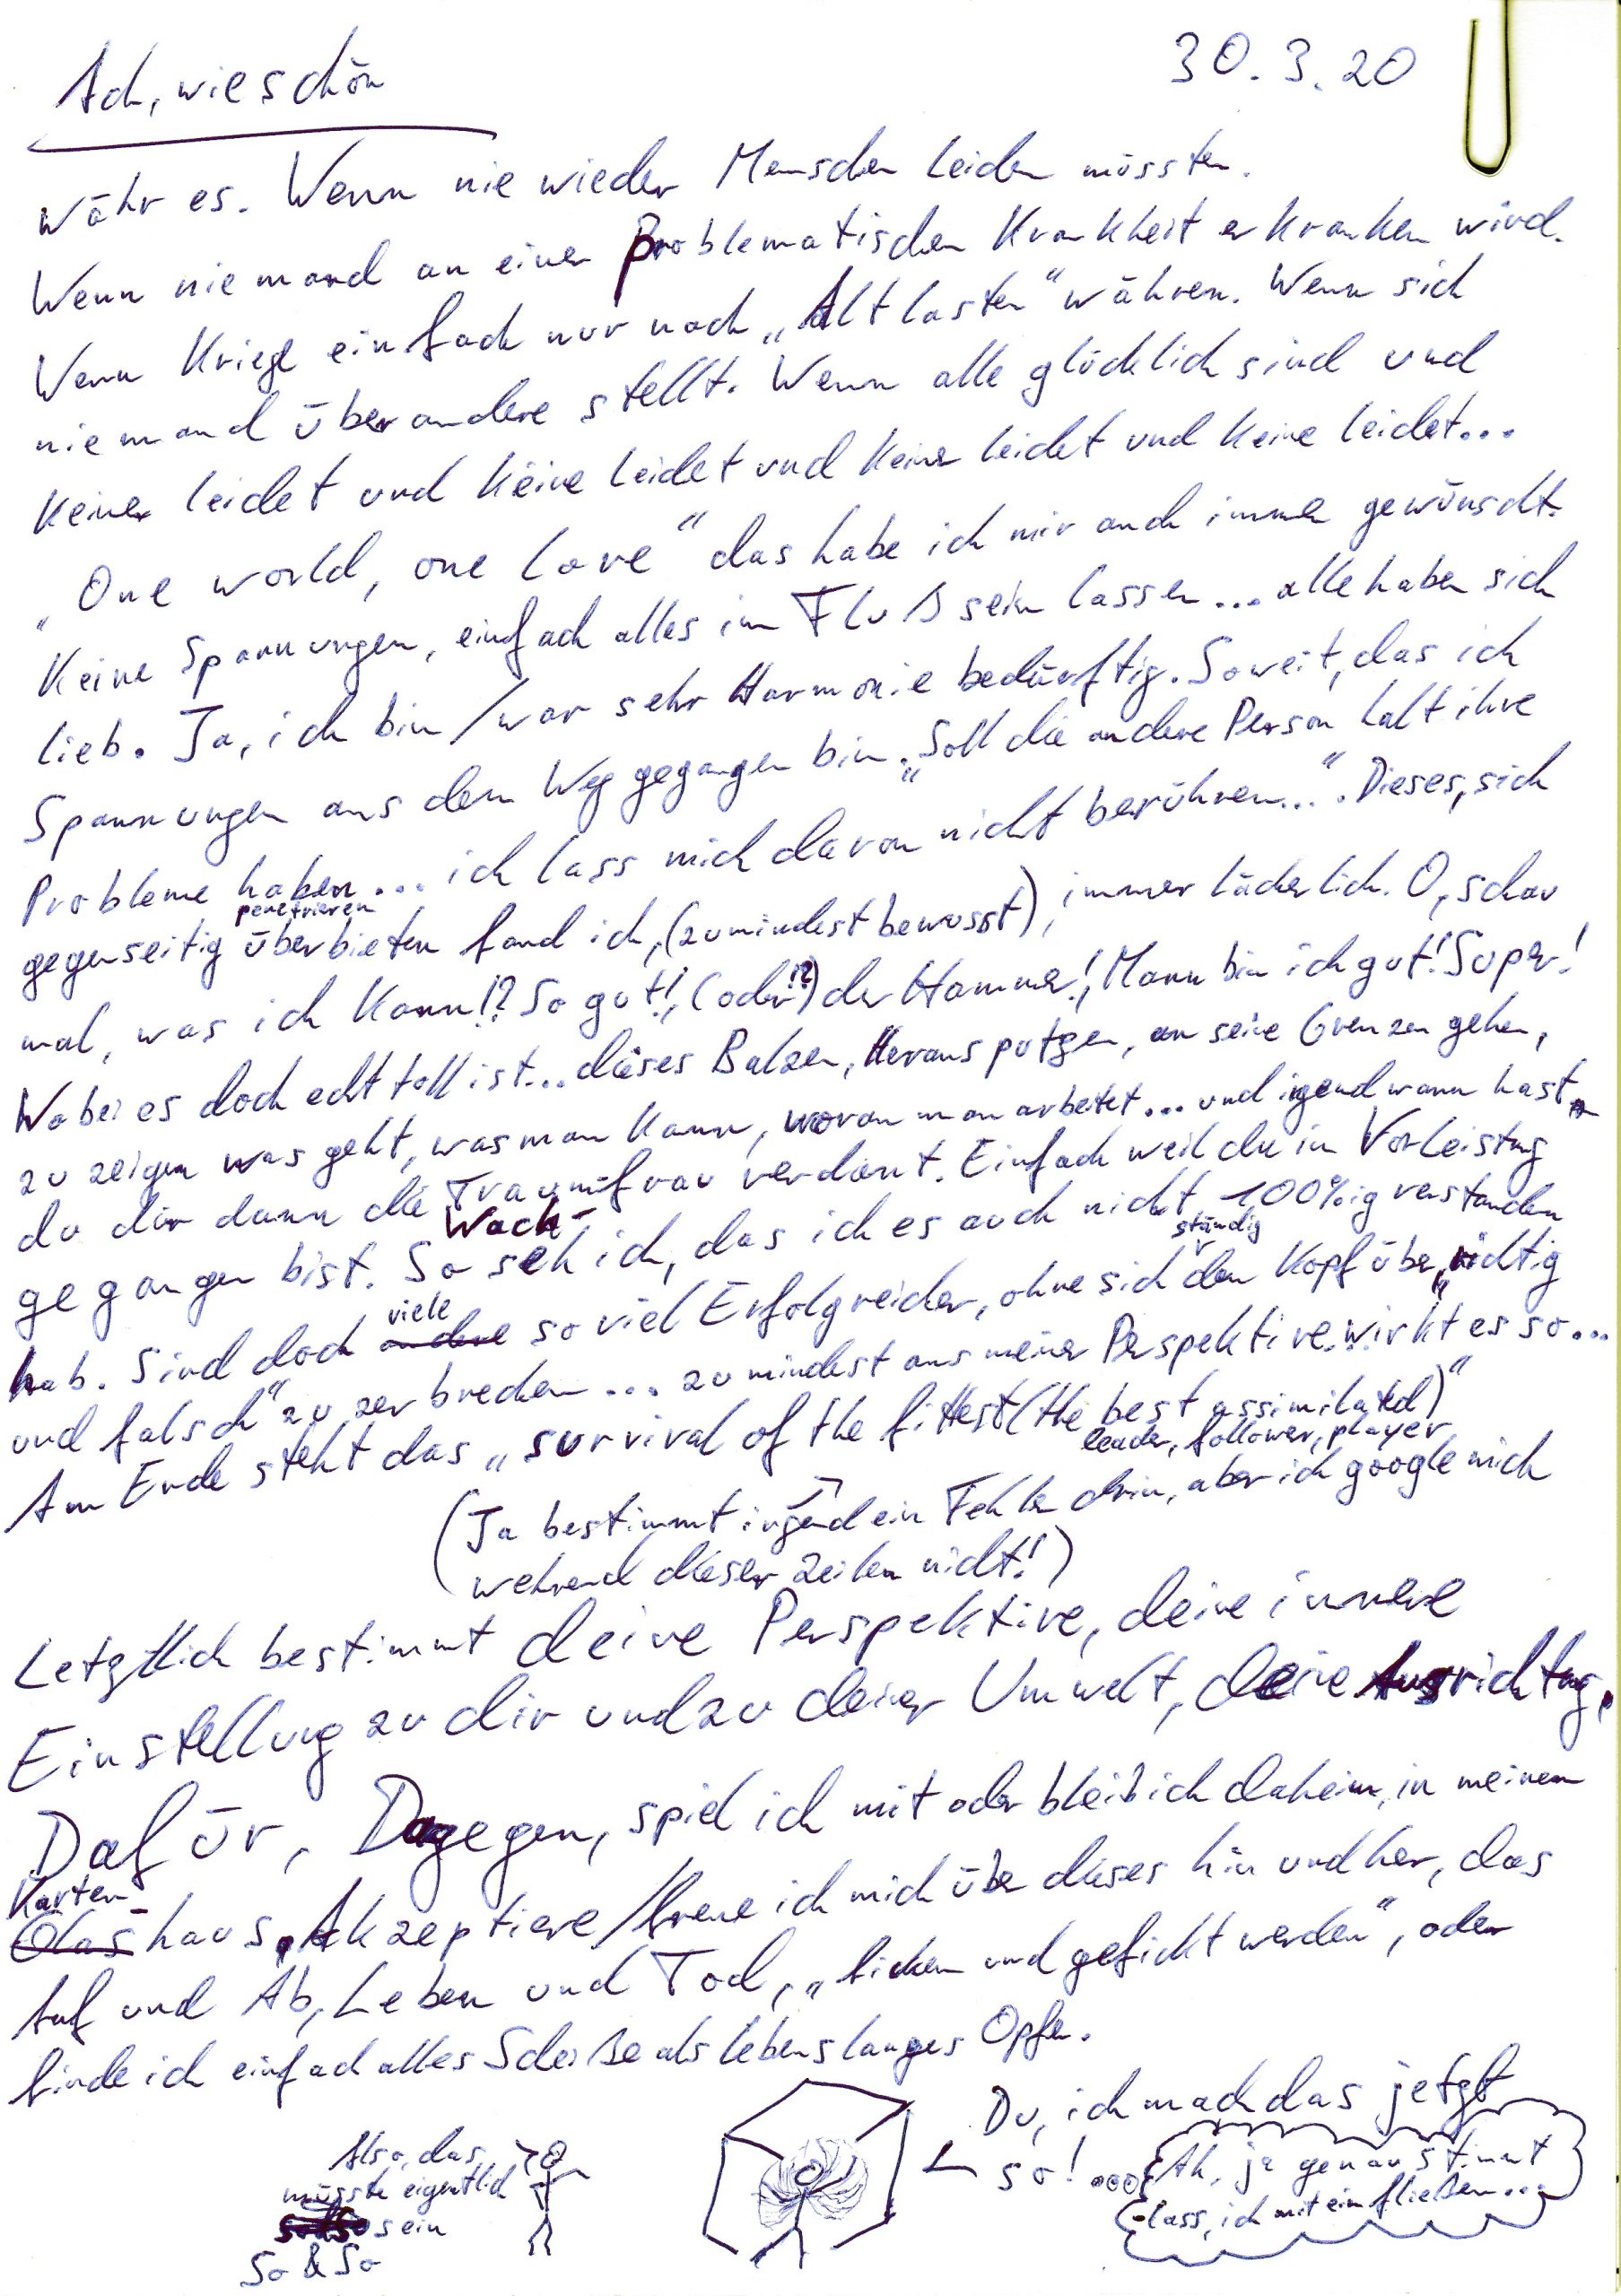 30.3.20
Ach, wie schön
währ es. Wenn nie wieder Menschen leiden müssten.
Wenn niemand an einer Problematischen Krankheit erkranken wird.
Wenn Kriege einfach nur noch „Altlasten“ währen. Wenn sich
niemand über andere stellt. Wenn alle glücklich sind und
keiner leidet und keine leidet und keiner leidet und keine leidet...
„One world, one love“ das habe ich mir auch immer gewünscht.
Keine Spannungen, einfach alles im Fluß sein lassen... alle haben sich
lieb. Ja, ich bin/war sehr Harmonie bedürftig. Soweit, das ich
Spannungen aus dem Weg gegangen bin. „Soll die andere Person halt ihre
Probleme haben... ich lass mich davon nicht berühren...“. Dieses, sich
penetrieren
gegenseitig überbieten fand ich, (zumindest bewusst), immer lächerlich. O, schau
mal, was ich kann!? So gut!, (oder!?) der Hammer!, Mann bin ich gut! Super!
Wobei es doch echt toll ist... dieses Balzen, Herausputzen, an seine Grenzen gehen,
zu zeigen was geht, was man kann, woran man arbeitet... und irgendwann hast
du dir dann die Traumfrau verdient. Einfach weil du in Vorleistung
gegangen bist. So seh ich, das ich es auch nicht 100%ig verstanden
Wach-
hab. Sind doch viele andere so viel Erfolgreicher, ohne sich ständig den Kopf über „richtig
und falsch“ zu zerbrechen... zumindest aus meiner Perspektive wirkt es so...
Am Ende steht das „survival of the fittest (the best assimilated)“
leader, follower, player
(Ja bestimmt irgend ein Fehler drin, aber ich google mich
wehrend dieser Zeilen nicht!)
Letztlich bestimmt deine Perspektive, deine innere
Einstellung zu dir und zu deiner Umwelt, deine Ausrichtung,
Dafür, Dagegen, spiel ich mit oder bleib ich daheim, in meinem
Karten-
Glashaus, Akzeptiere/freue ich mich über dieses hin und her, das
Auf und Ab, Leben und Tod, „ficken und gefickt werden“, oder
finde ich einfach alles Scheiße als lebenslanges Opfer.
Also, das
müsste eigentlich
sein
So & So
Du, ich mach das jetzt
so!
Ah, ja genau stimmt
lass, ich mit einfließen...